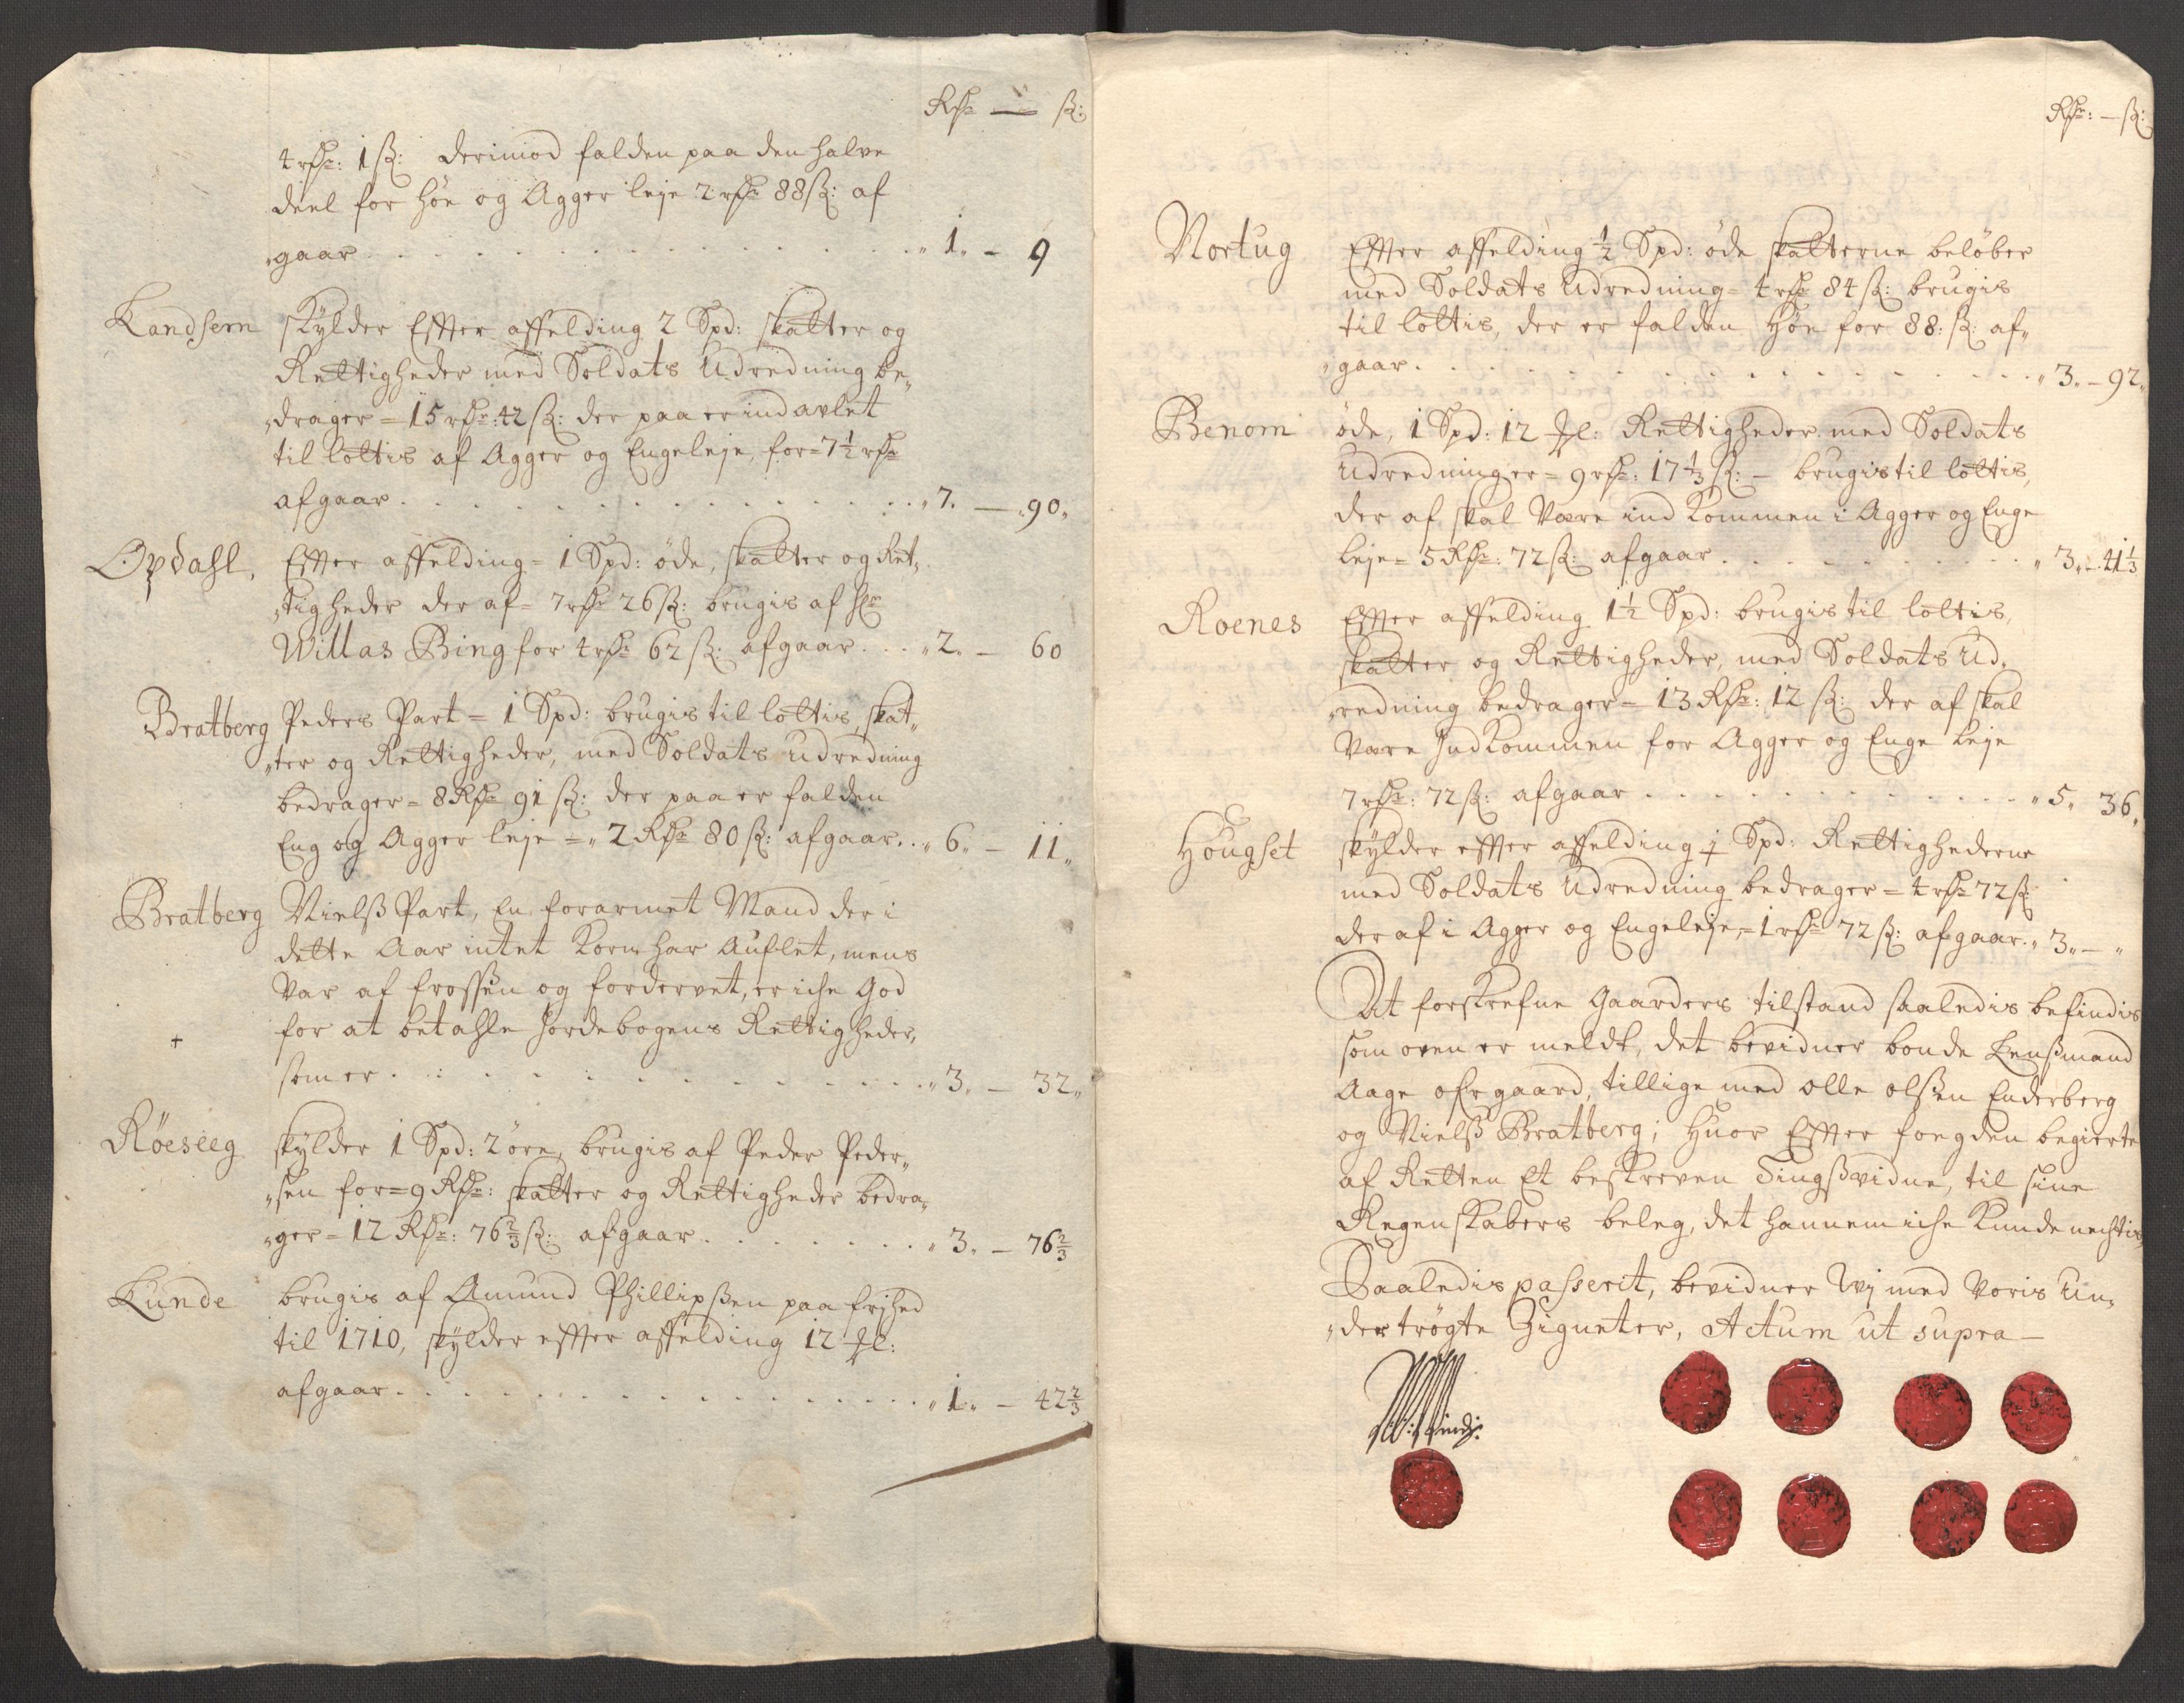 Rdr — ß:
4 rdr: 1 ß: derimod falden paa den halve
deel for Höe og Agger leje 2 rdr 88 ß: af
gaar . . . . . . . . . . „ 1. - 9
Landsem skÿlder Effter affelding 2 Spd: skatter og
Rettigheder med Soldats Udredning be„
„drager = 15 rdr: 42 ß: der paa er indavlet
til löttis af Agger og Engeleje, for = 7½ rdr
afgaar . . . . . . . . . . „ 7. — „90„
Opdahl, Effter affelding = 1 Spd: öde, skatter og Ret„
„tigheder der af = 7 rdr 26 ß: brugis af Hr
Willas Bing for 4 rdr 62 ß: afgaar . . . „ 2„ - 60
Bratberg Peders Part = 1 Spd: brugis til löttis, skat„
„ter og Rettigheder, med Soldats udredning
bedrager = 8 Rdr 91 ß: der paa er falden
Eng og Agger leje = „ 2 Rdr 80 ß: afgaar . . „ 6„ - 11„
Bratberg Nielß Part, En forarmet Mand der i
dette Aar intet Korn har Auflet, mens
Var af frossen og fordervet, er iche God
for at betahle Jordebogens Rettigheder,
som er . . . . . . . . . . „ 3„ - 32„
Röeseeg skÿlder 1 Spd: 2 öre, brugis af Peder Peder„
„sen for = 9 Rdr: skatter og Rettigheder bedra„
„ger = 12 Rdr: 76⅔ ß: afgaar . . . . . . . „ 3„ - 76⅔
Lunde brugis af Amund Phillipßen paa frihed
til 1710, skÿlder effter affelding 12 Ml:
afgaar . . . . . . . . . . „ 1„ - 42⅔
Rdr: — ß:
Nortug Effter affelding ½ Spd: öde skatterne belöber
med Soldats Udredning = 4 rdr 84 ß: brugis
til löttis, der er falden Höe for 88: ß: af„
„gaar . . . . . . . . . . „ 3„ - 92„
Benom öde, 1 Spd: 12 Ml: Rettigheder med Soldats
Udredninger = 9 rdr: 17⅓ ß: - brugis til löttis,
der af skal Være ind Kommen i Agger og Enge
leje = 5 Rdr: 72 ß: afgaar . . . . . . . „ 3„ - 41⅓
Roenes Effter affelding 1½ Spd: brugis til löttis,
skatter og Rettigheder, med Soldats Ud„
„redning bedrager = 13 Rdr: 12 ß: der af skal
Være Ind Kommen for Agger og Enge Leje
7 rdr: 72 ß: afgaar . . . . . . . . . . „ 5„ 36„
Hougset skÿlder effter affelding 1 Spd: Rettighederne
med Soldats Udredning bedrager = 4 rdr 72 ß
der af i Agger og Engeleje, = 1 rdr 72 ß: afgaar. „ 3„ - „
At forskrefne Gaarders tilstand saaledis befindis
som oven er meldt, det bevidner bonde Lenßmand
Aage ofregaard, tillige med olle olßen Enderberg
og Nielß Bratberg; Huor Effter fogden begierte
af Retten Et beskreven Tingßvidne, til sine
Regenskabers beleg, det hannem iche Kunde nechtis,
Saaledis passerit, bevidner Wj med Voris Un„
„dertrögte Zigneter, Actum ut supra —